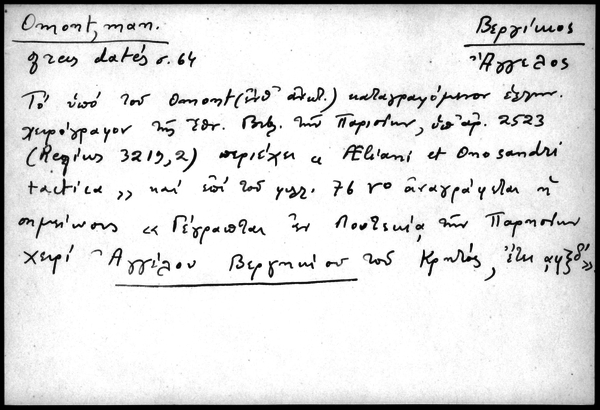 Omont, man.
grecs datés σ. 64
Βεργίκιος
Ἄγγελος
Τό ὑπό τοῦ Omont (ἔνθ' ἀνωτ.) καταγραφόμενον ἑλλην.
χειρόγραφον τῆς Ἐθν. Βιβ. τῶν Παρισίων, ὑπ' ἀρ. 2523
(Regius 3219,2) περιέχει « Æliani et Onosandri
tactica » καί ἐπί τοῦ φυλ. 76 vο ἀναγράφεται ἡ
σημείωσις « Γέγραπται ἐν Λουτεκίᾳ τῶν Παρησίων
χειρί Ἀγγέλου Βεργηκίου τοῦ Κρητός, ἔτει ͵αφξδ´».